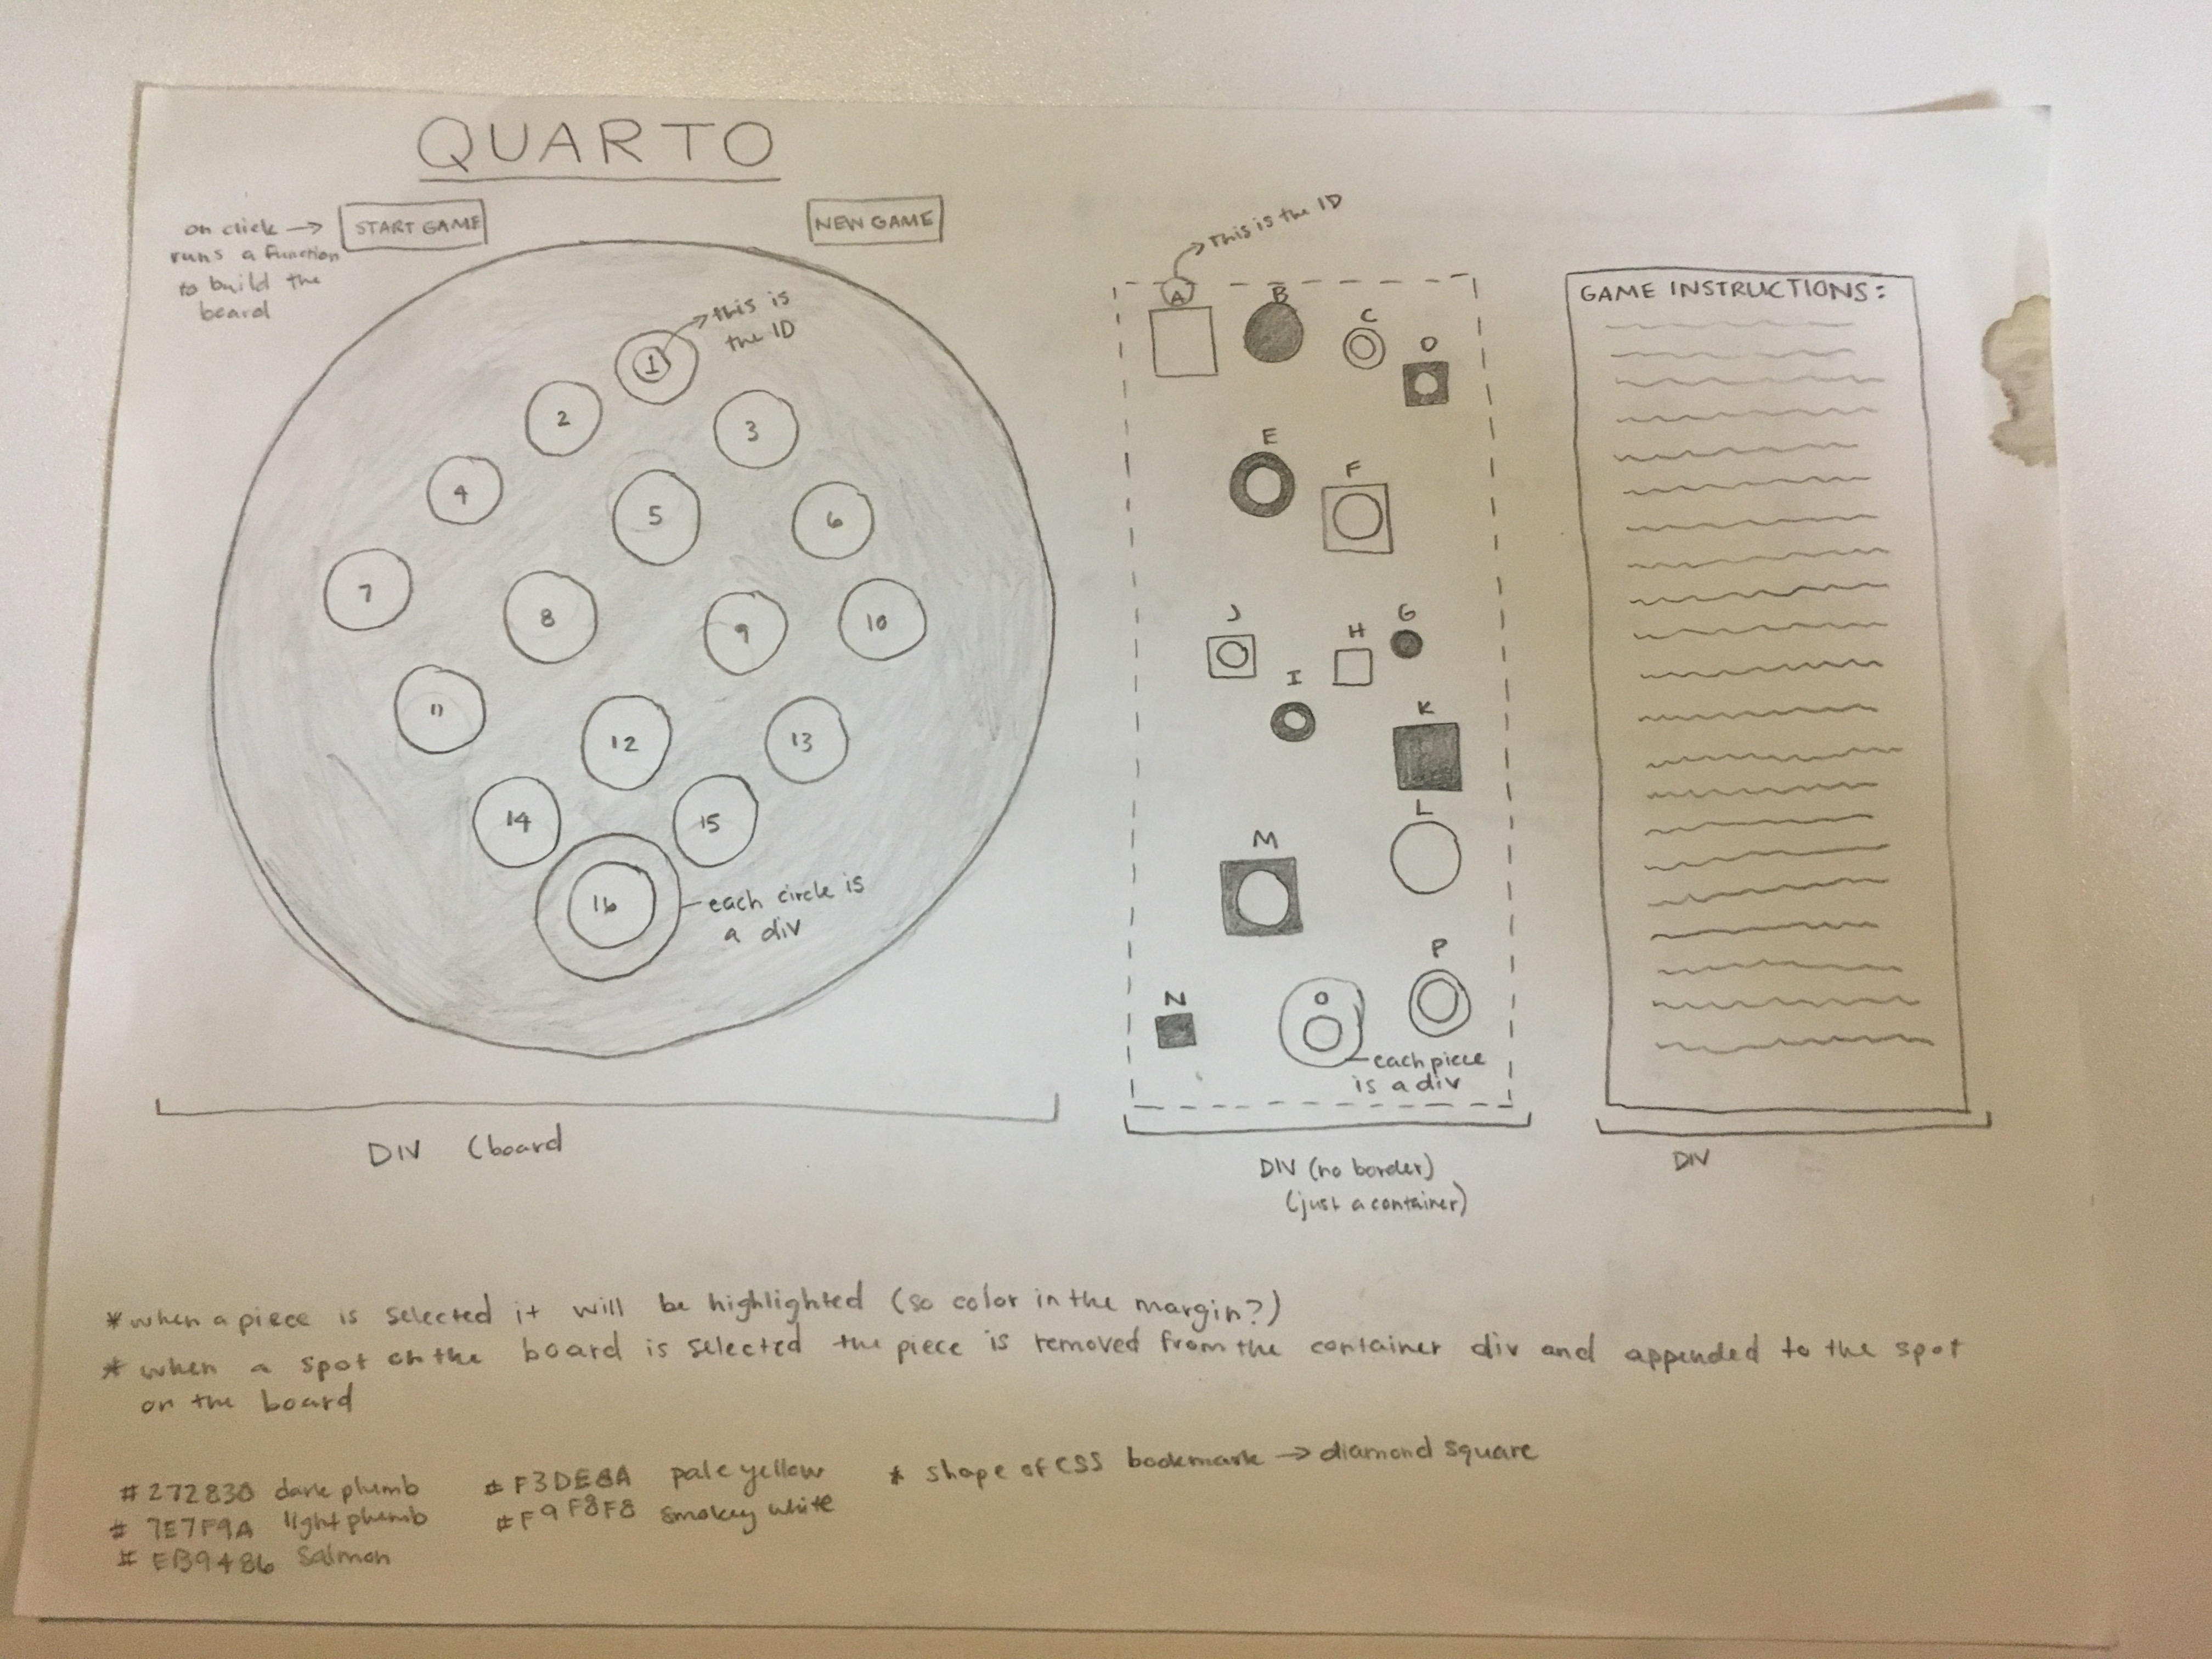 QUARTO
on click →
runs a function
to build the
board
START GAME
NEW GAME
this is
the ID
1
2
3
4
5
6
7
8
9
10
11
12
13
14
15
16
each circle is
a div
DIV (board
this is the ID
A
B
C
D
E
F
J
H
G
I
K
L
M
P
N
O
each piece
is a div
DIV (no border)
(just a container)
GAME INSTRUCTIONS:
DIV
* when a piece is selected it will be highlighted (so color in the margin?)
* when a spot on the board is selected the piece is removed from the container div and appended to the spot
on the board
#272838 dark plumb
# 7E7F9A light plumb
# EB9486 Salmon
# F3DE8A pale yellow
#F9F8F8 smokey white
* shape of CSS bookmark → diamond square